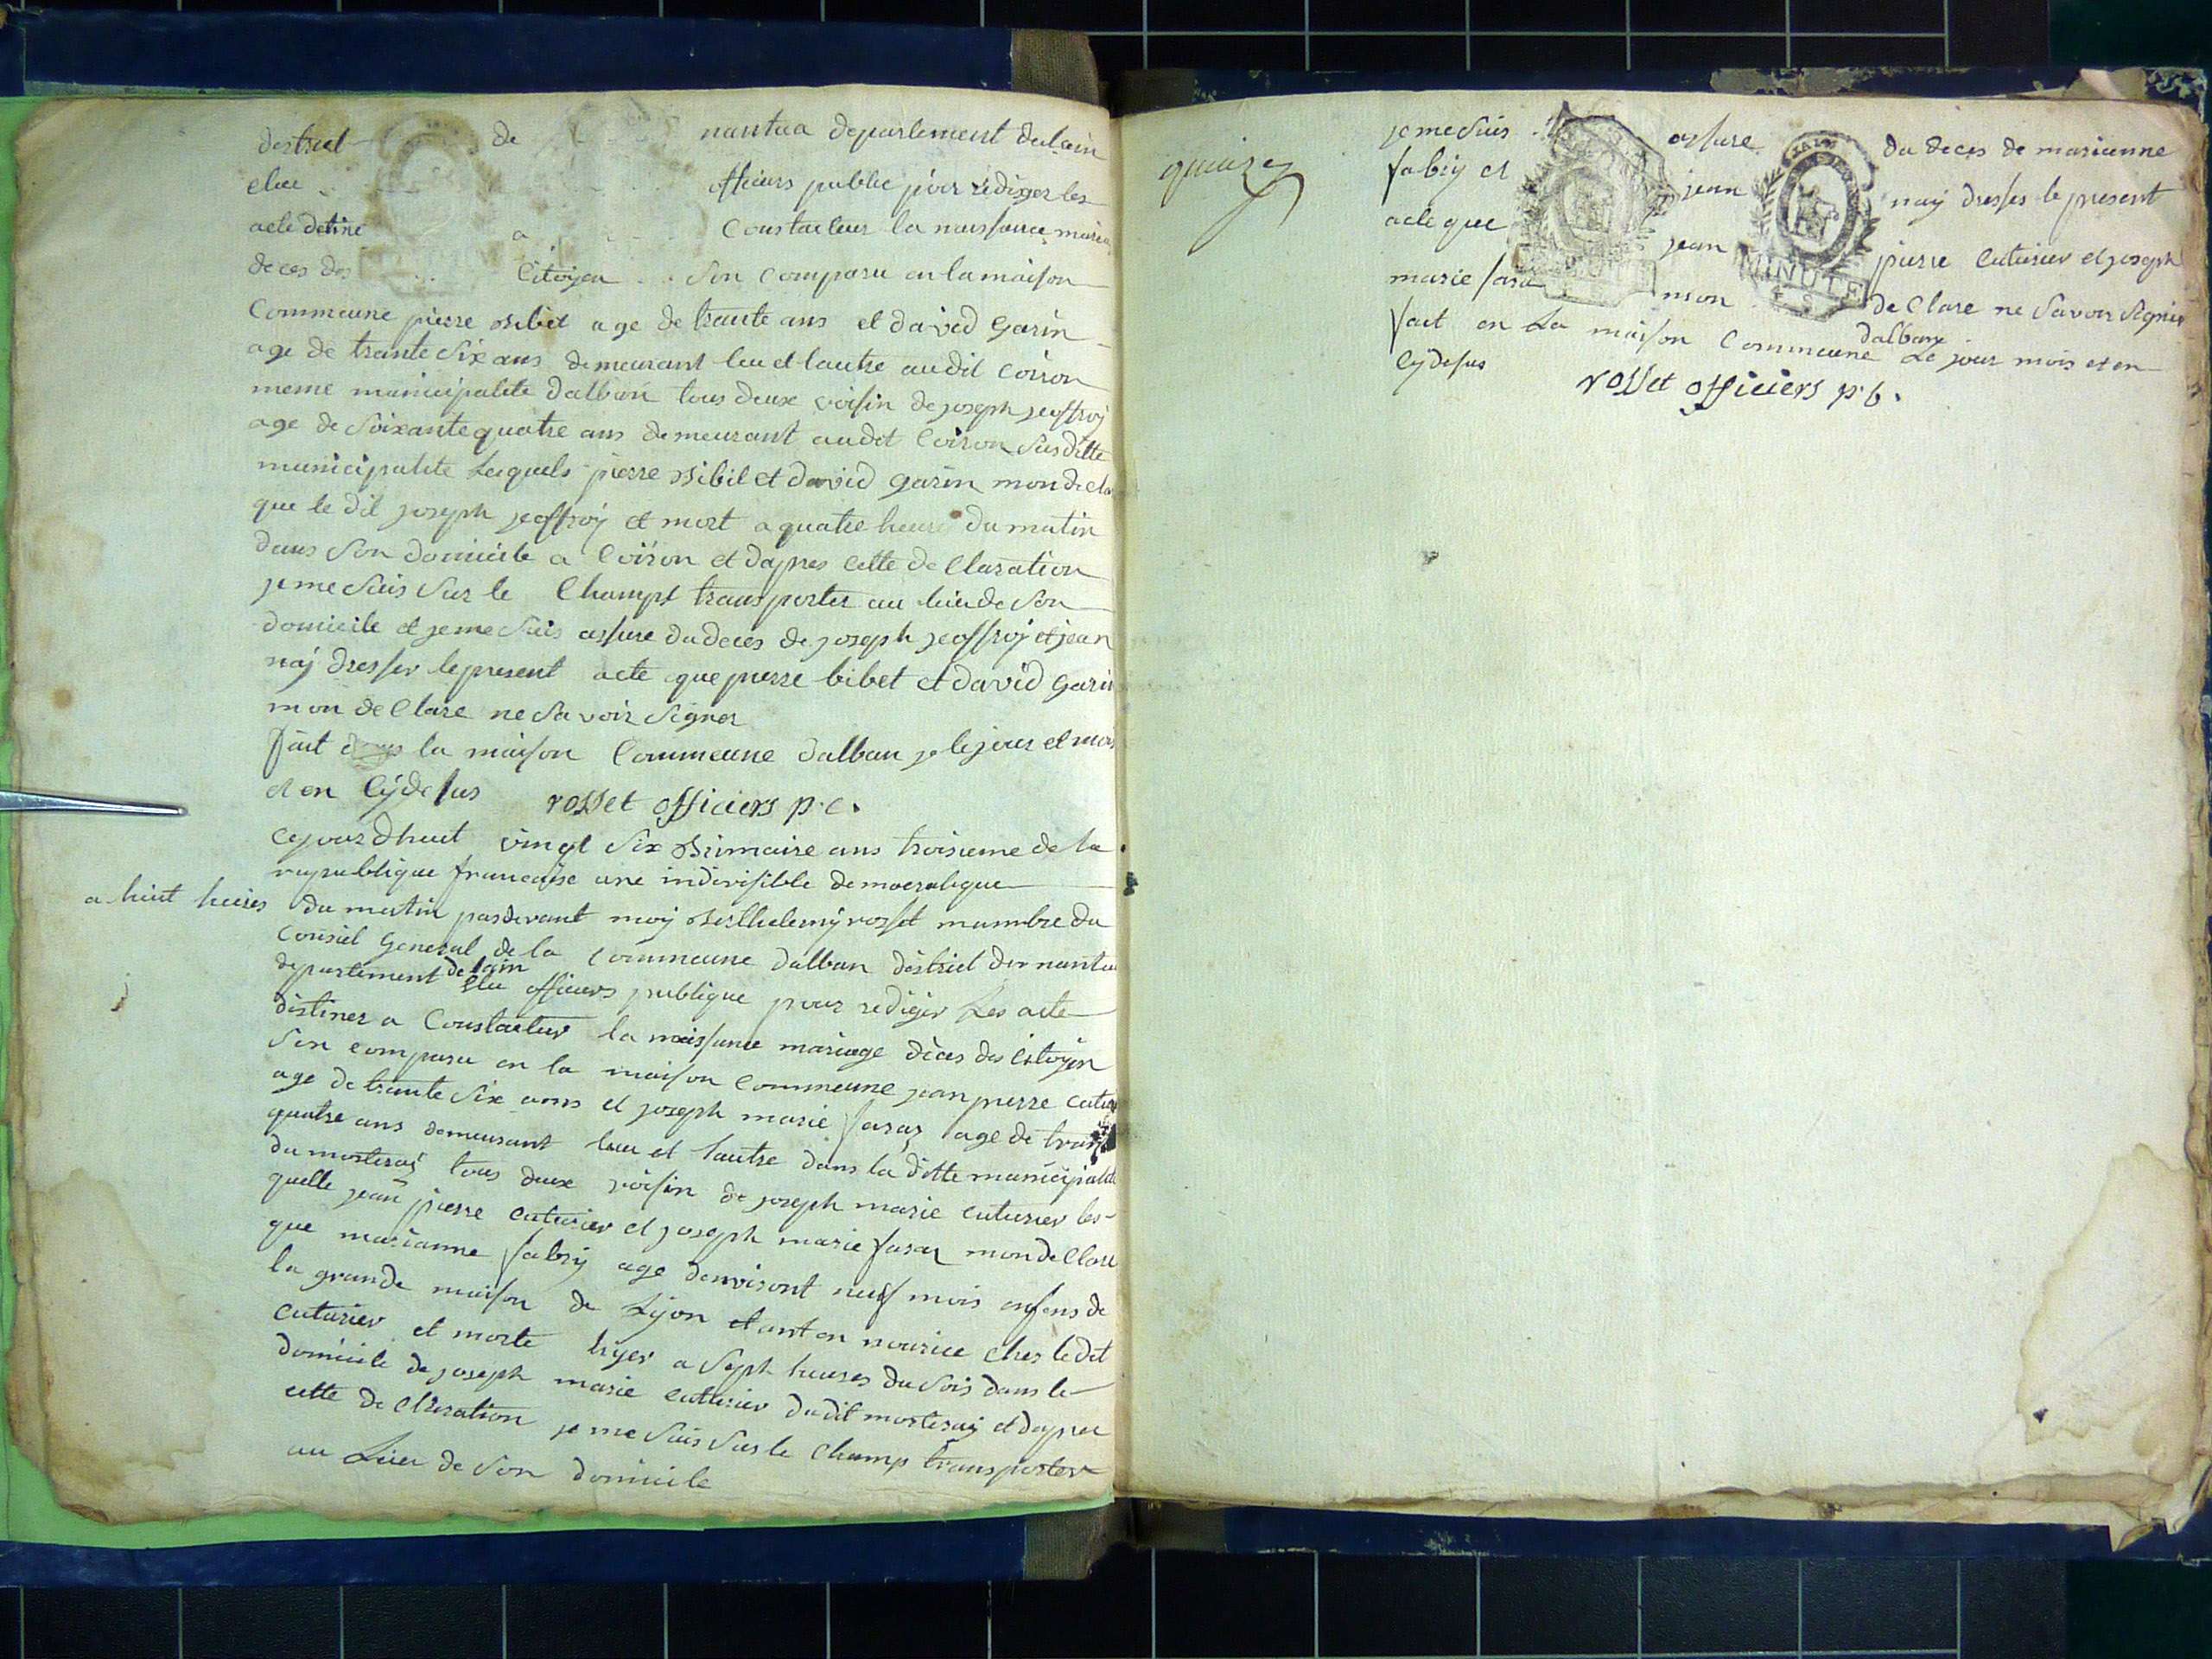 destriel de nantua departement de lain
elue officiers public pour redixger les
acte detine a Constacteur la naissance maria
deces des Citoijen Son comparu en la maison
Commeune pierre bibet age de trante ans et david garin
age de trante Six ans demeurant lun et lautre audit Coiron
meme municipalite dalban tous deux voisin de joseph jeoffroij
age de Soixante quatre ans demeurant audit Coiron Susditte
municipalite Lesquels pierre bibil et david garin mon decla
que le dit joseph jeoffroij et mort a quatre heures du matin
dans Son domicile a Coiron et dapres cette de Claration
je me Suis Sur le Champt transporter au lieu de Son
domicile et je me Suis assure du deces de joseph jeoffroij et jean
naij dresser le present acte que pierre bibet et david garin
mon de Clare ne Savoir Signer
fait dans la maison Commeune dalban je le jour et mois
et en Cijdesus rosset officiers p. c.
cejourdhuit vingt Six brimaire ans troisieme de la
republique francaise une indivisible democratique
a huit heures du mestin pardevant moij berthelemij rosset mambre du
Consiel General de la Commeune dalban destriel der nantua
departement de lain elu officiers publique pour redigir Les acte
distiner a Constacteur la naissance mariage dèces des Citoijen
Son comparu en la maison Commeune jean pierre cuturi
age de trante Six ans et joseph marie faraz age de trant
quatre ans demeurant lun et lautre dans la ditte municipalite
du morteraij tous deux voisin de joseph marie cuturier les-
quelle jean pierre cuturier et joseph marie faraz mon de Clare
que marianne fabrij age denviront neuf mois enfens de
la grande maison de Lijon etant en nourice ches ledit
cuturier et morte hijer a Seph heures du Soir dans le
domicile de joseph marie cutturier dudit morteraij et dapres
cette de Claration je me Suis Sur le Champ transporter
au Lieu de Son domicile
quinze
je me Suis assure du deces de marianne
fabrij et jean naij dresses le present
acte que jean pierre Cuturier et joseph
marie fara mon de Clare ne Savoir Signer
fait en La maison Commeune dalban Le jour mois et en
Cijdesus
rosset officiers p. b.
MINUTE